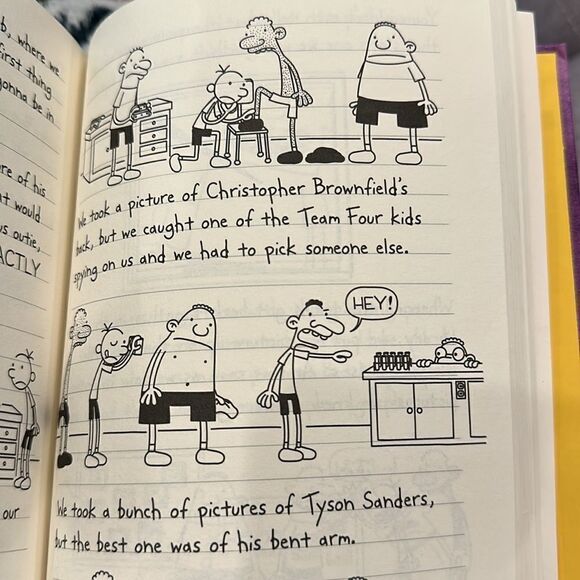 where we
first thing
gonna be in
re of his
would
us outie,
ACTLY
our
We took a picture of Christopher Brownfield's
back, but we caught one of the Team Four kids
spying on us and we had to pick someone else.
HEY!
We took a bunch of pictures of Tyson Sanders,
but the best one was of his bent arm.